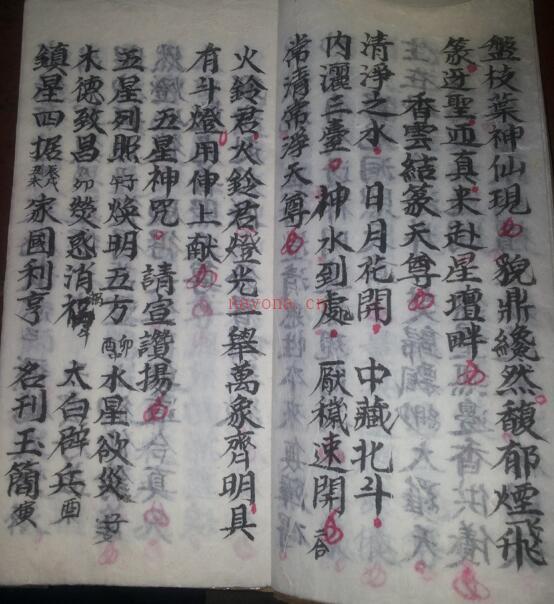 盤技葉神仙現 貌鼎纔然馥郁煙飛
篆迓聖迎真来赴星壇畔
香雲結篆天尊
清淨之水 日月花開 中藏北斗
内灑三臺 神水到處 厭穢速開
常清常淨天尊
火鈴君火鈴君燈光一舉萬象齊明具
有斗燈用伸上献
五星神咒 請宣讚揚
五星列照 焕明五方 水星欲災
木德致昌 卯 熒惑消禍 太白辟兵 酉
鎮星四据 家國利亨 名刊玉簡 寅
nayona.cn